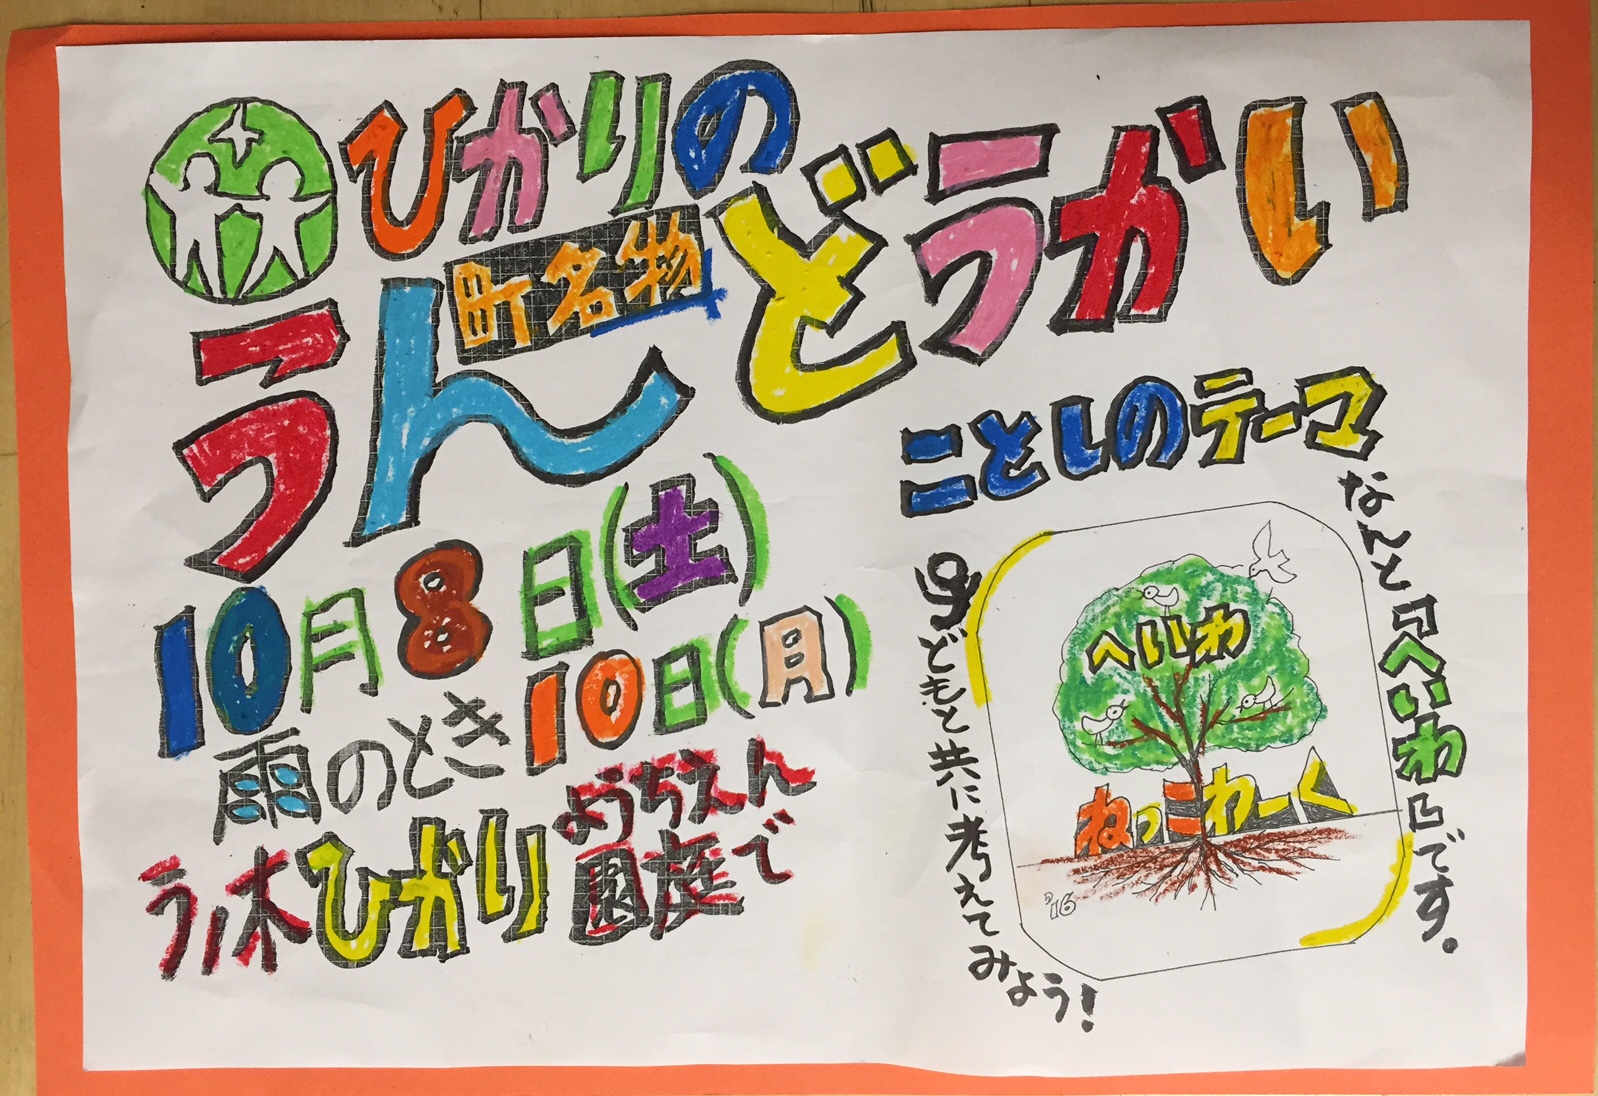 ひかりの
町名物
うんどうかい
10月8日(土)
雨のとき10日(月)
ラノ木ひかりようちえん
園庭で
ことしのテーマ
なんと『へいわ』です。
へいわ
ねっこわーく
'16
子どもと共に考えてみよう!